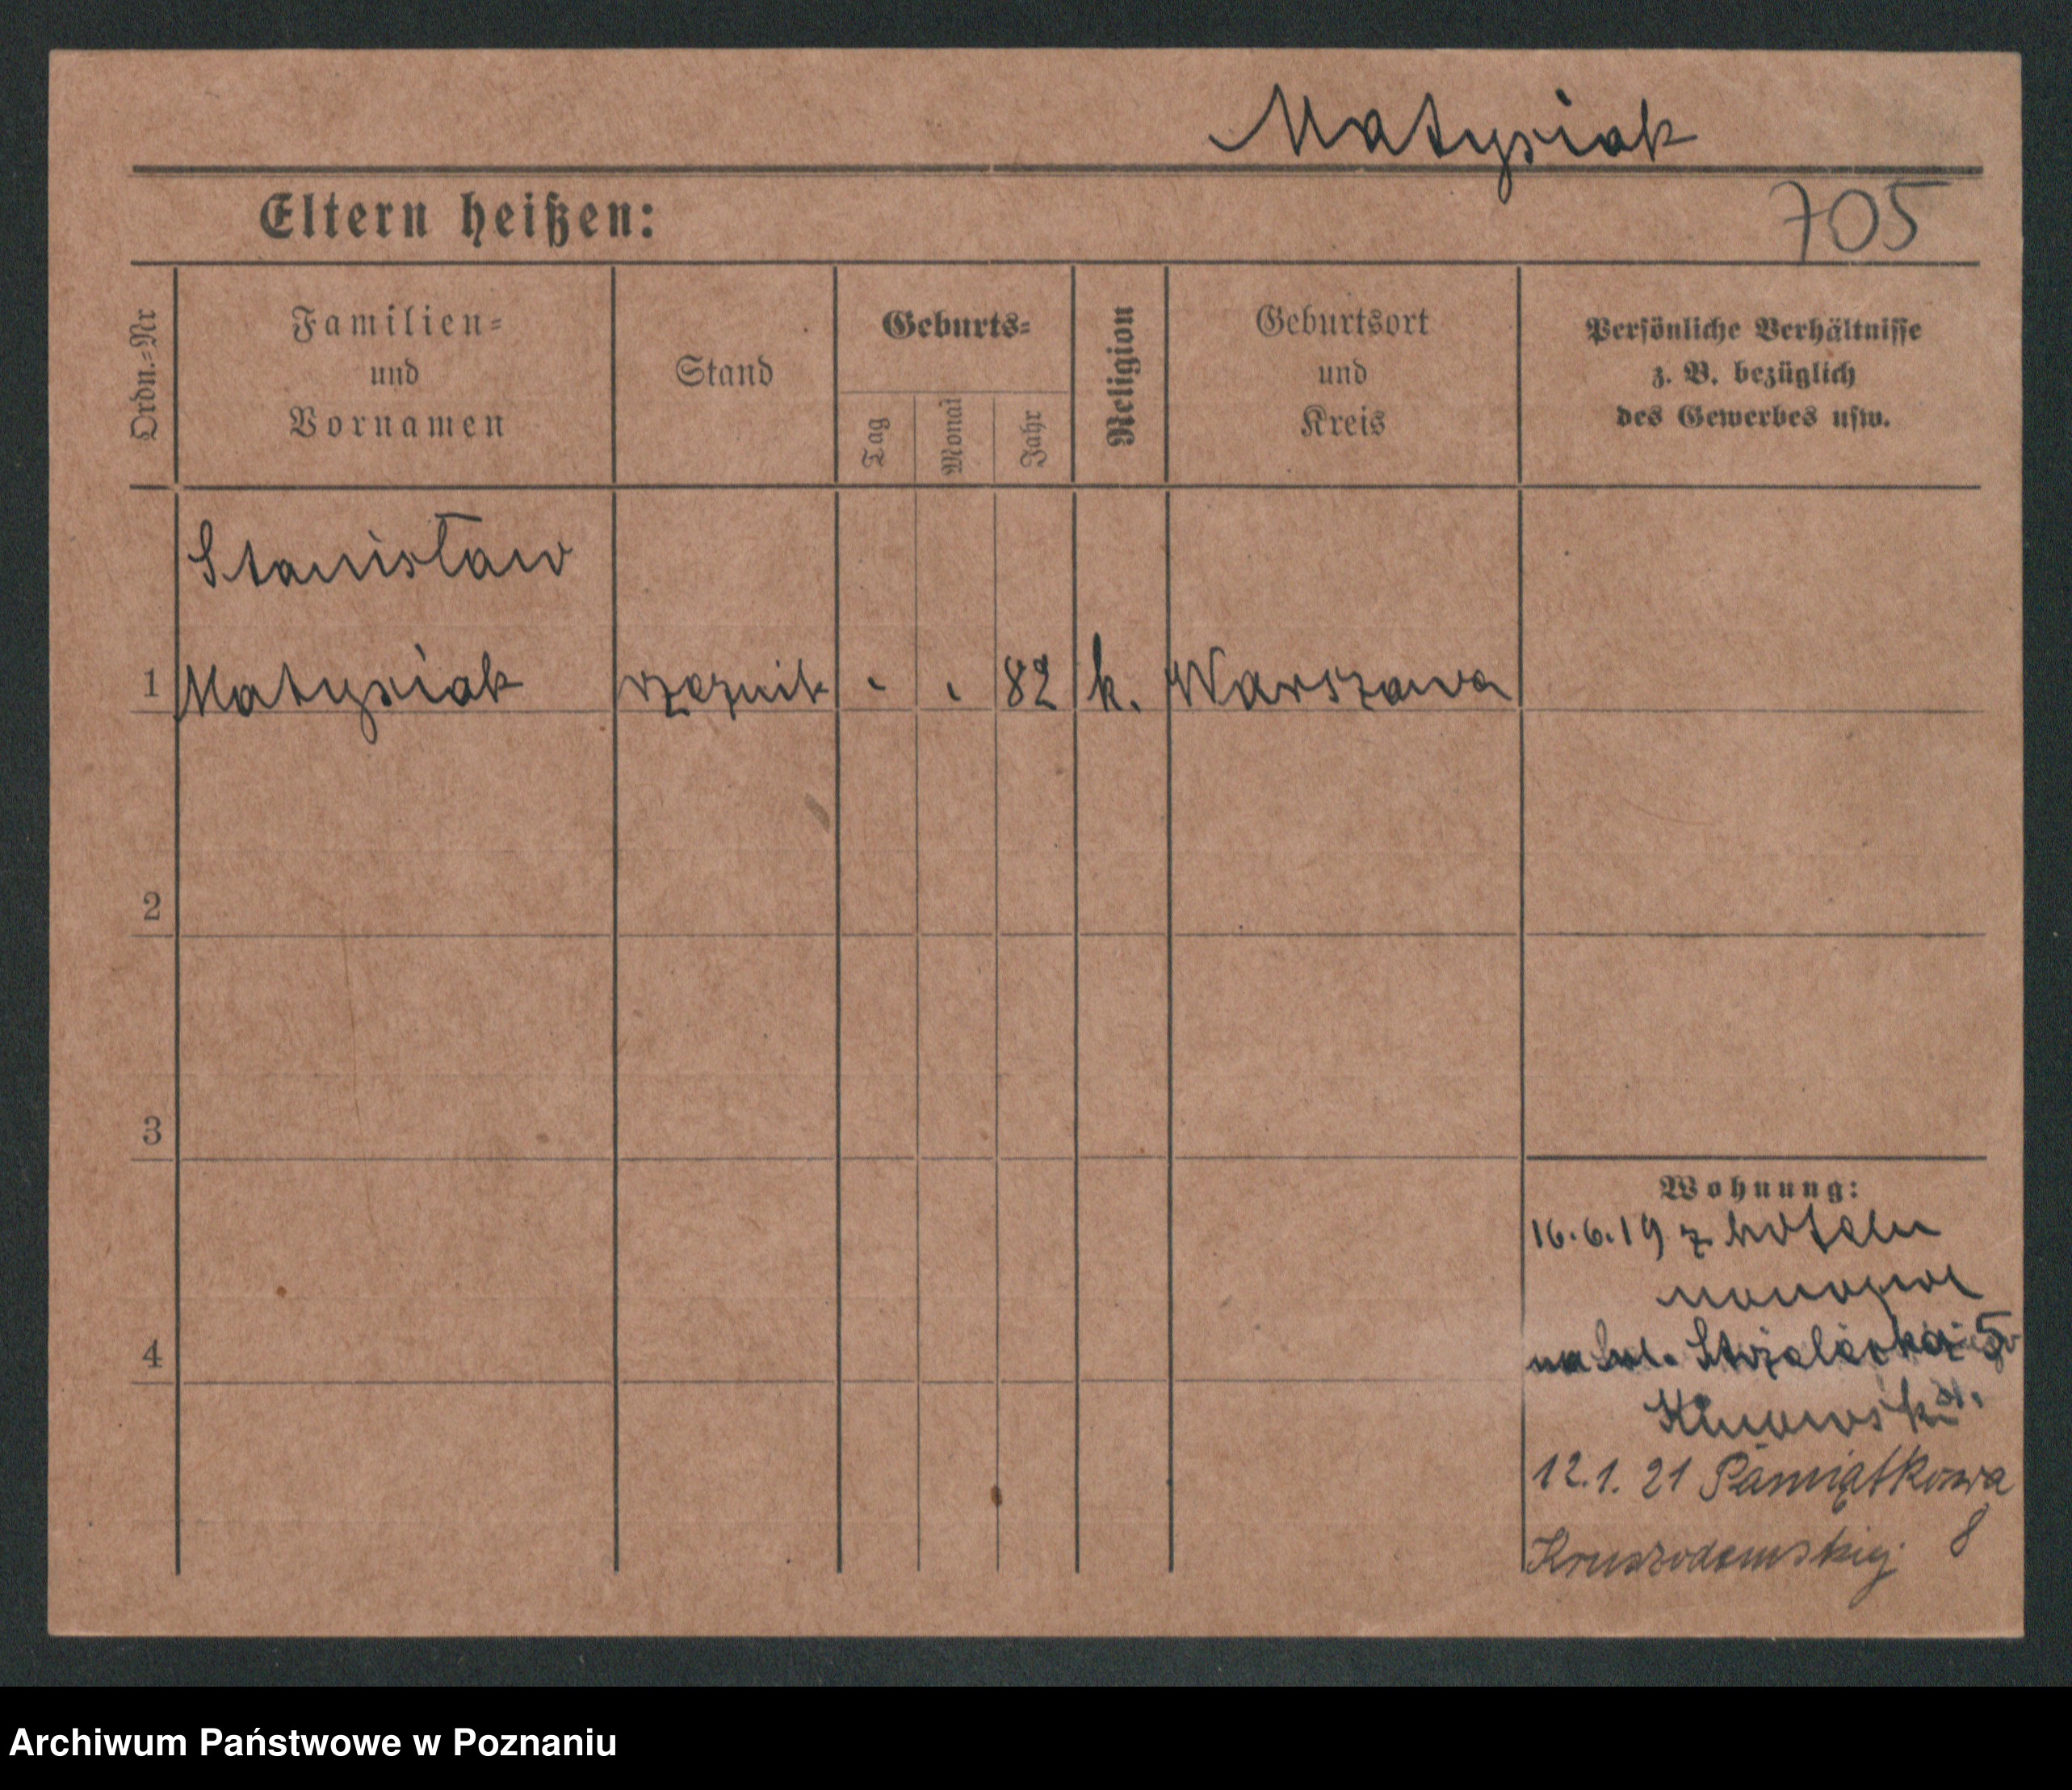 Matysiak
Eltern heißen:
705
Ordn.-Nr
Familien-
und
Vornamen
Stand
Geburts-
Tag
Monat
Jahr
Religion
Geburtsort
und
Kreis
Persönliche Verhältnisse
z. B. bezüglich
des Gewerbes usw.
Stanisław
1 Matysiak rzeznik - - 82 k. Warszawa
2
3
4
Wohnung:
16.6.19 z hotelu
monopol
na Strzelecka 5
12.1.21 Pamiątkowa
8
Archiwum Państwowe w Poznaniu